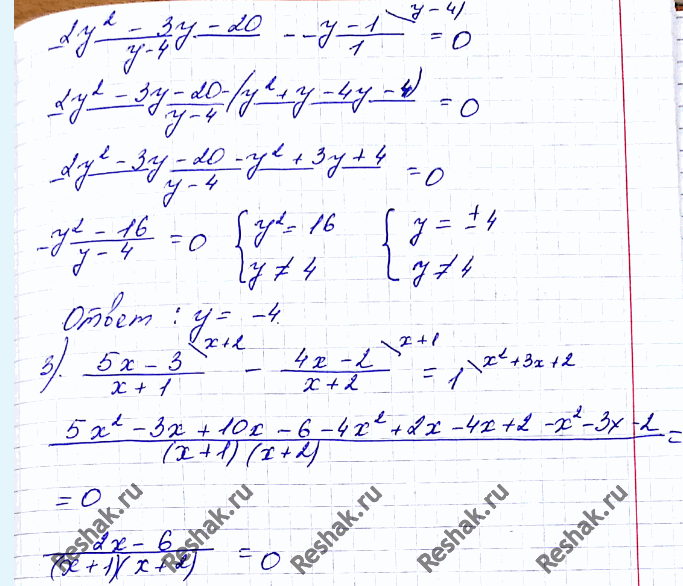 (2y² - 3y - 20)/(y - 4) - (y - 1)/1 \y - 4) = 0
(2y² - 3y - 20 - (y² + y - 4y - 4))/(y - 4) = 0
(2y² - 3y - 20 - y² + 3y + 4)/(y - 4) = 0
(y² - 16)/(y - 4) = 0 { y² = 16 { y = ±4
y ≠ 4 y ≠ 4
Ответ: y = -4.
3). (5x - 3)/(x + 1) \x+2 - (4x - 2)/(x + 2) \x+1 = 1 \x²+3x+2
(5x² - 3x + 10x - 6 - 4x² + 2x - 4x + 2 - x² - 3x - 2)/((x + 1)(x + 2)) =
= 0
(2x - 6)/((x + 1)(x + 2)) = 0
Reshak.ru Reshak.ru Reshak.ru Reshak.ru Reshak.ru